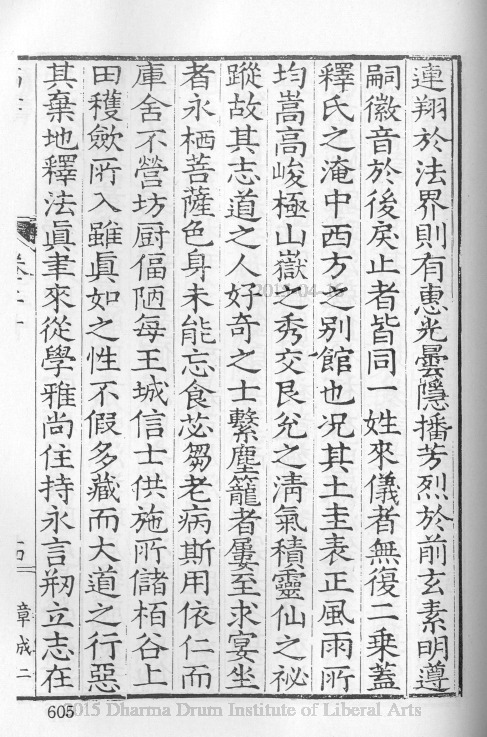 連翔於法界則有惠光曇隱播芳烈於前玄素明遵
嗣徽音於後戾止者皆同一姓來儀者無復二乘蓋
釋氏之淹中西方之別館也况其土圭表正風雨所
均嵩高峻極山嶽之秀交艮兊之淸氣積靈仙之祕
蹤故其志道之人好奇之士繫塵籠者屢至求宴坐
者永栖菩薩色身未能忘食苾芻老病斯用依仁而
庫舍不營坊厨偪陋每王城信士供施所儲栢谷上
田穫斂所入雖眞如之性不假多藏而大道之行惡
其棄地釋法眞聿來從學雅尚住持永言刱立志在
卷二十
章成二
605
2015 Dharma Drum Institute of Liberal Arts